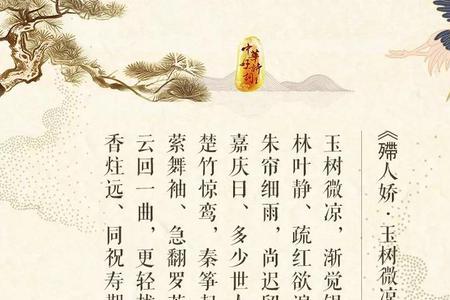 《殢人娇·玉树微凉
玉树微凉，渐觉银
林叶静、疏红欲遍
朱帘细雨，尚迟留
嘉庆日、多少世人
楚竹惊鸾，秦筝起
萦舞袖、急翻罗荐
云回一曲，更轻栊
香炷远、同祝寿期